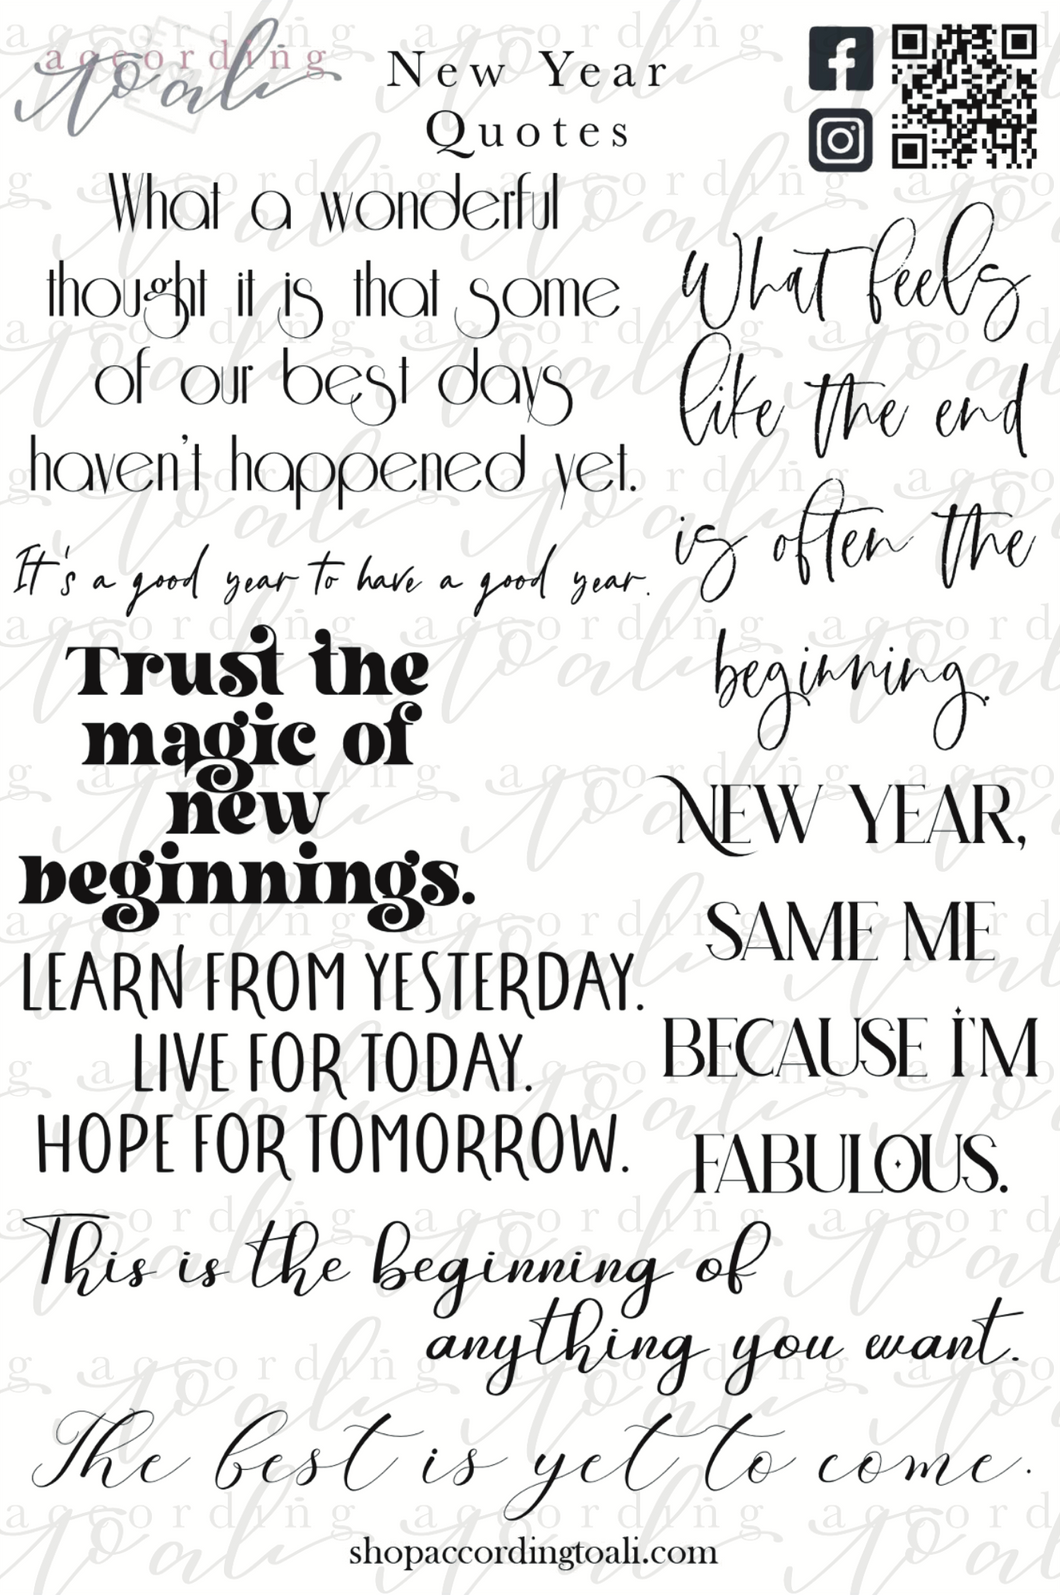 according
toali
New Year
Quotes
What a wonderful
thought it is that some
of our best days
haven't happened yet.
It's a good year to have a good year.
Trust the
magic of
new
beginnings.
LEARN FROM YESTERDAY.
LIVE FOR TODAY.
HOPE FOR TOMORROW.
What feels
like the end
is often the
beginning.
NEW YEAR,
SAME ME
BECAUSE I'M
FABULOUS.
This is the beginning of
anything you want.
The best is yet to come.
shopaccordingtoali.com